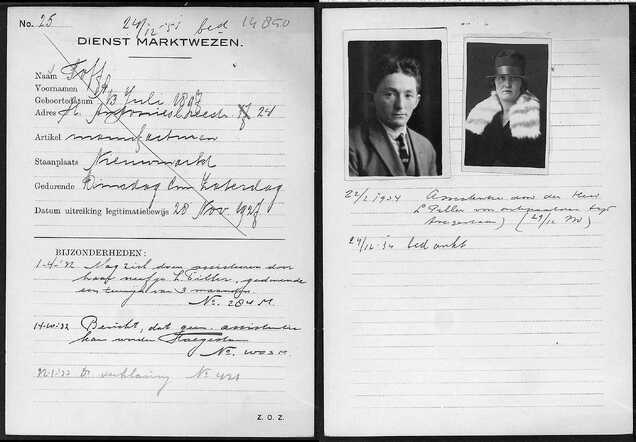 No. 25 24/12 '51 bed 14890
DIENST MARKTWEZEN.
Naam
Voornamen
Geboortedatum 13 Juli 1897
Adres St. Antoniesbreestr 24
Artikel manufacturen
Staanplaats Nieuwmarkt
Gedurende Dinsdag t/m Zaterdag
Datum uitreiking legitimatiebewijs 28 Nov. 1927
BIJZONDERHEDEN:
1-4-'32 Mag zich doen assisteeren door
haar neefje L. gedurende
een 3 maanden
No. 284 M.
14-10-'32 Bericht, dat geen assistentie
kan worden toegestaan
No. M.
verklaring No 421
Z. O. Z.
22/2 1934 Assistentie door den Heer
L
toegestaan) (29/12 M)
24/12-'34 bed.